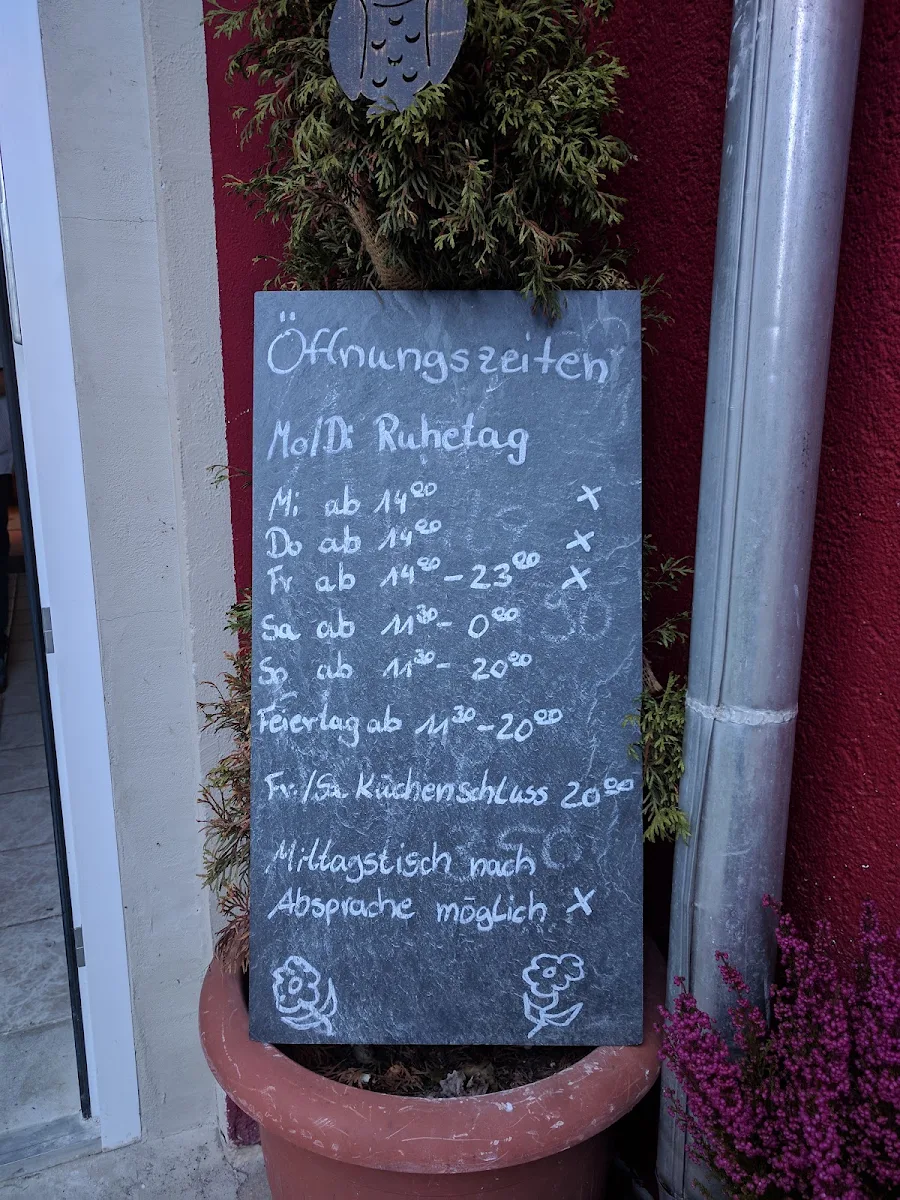 Öffnungszeiten
Mo/Di Ruhetag
Mi ab 14⁰⁰ x
Do ab 14⁰⁰ x
Fr ab 14⁰⁰ - 23⁰⁰ x
Sa ab 11³⁰ - 0⁰⁰
So ab 11³⁰ - 20⁰⁰
Feiertag ab 11³⁰ - 20⁰⁰
Fr./Sa Küchenschluss 20⁰⁰
Mittagstisch nach
Absprache möglich x